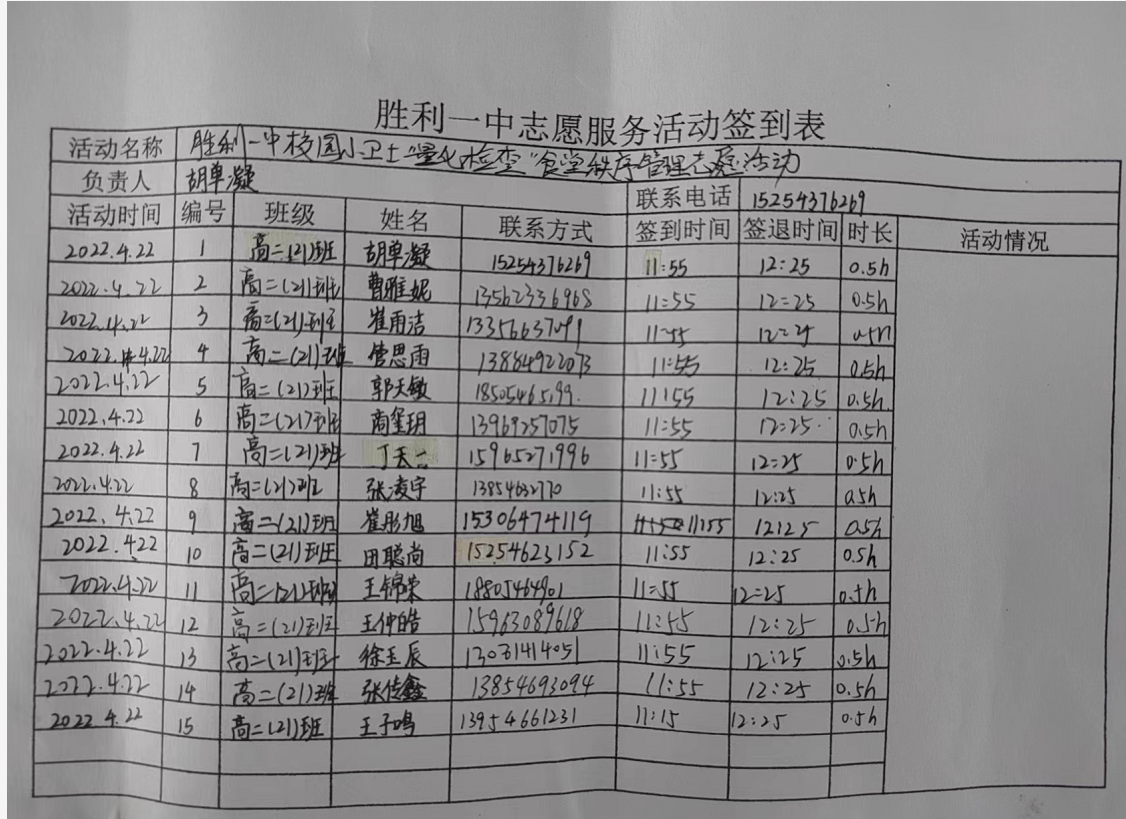 胜利一中志愿服务活动签到表
活动名称 胜利一中校园小卫士"量化检查"食堂秩序管理志愿活动
负责人 胡单凝 联系电话 15254376269
活动时间 编号 班级 姓名 联系方式 签到时间 签退时间 时长 活动情况
2022.4.22 1 高二(21)班 胡单凝 15254376269 11:55 12:25 0.5h
2022.4.22 2 高二(21)班 曹雅妮 13562336968 11:55 12:25 0.5h
2022.4.22 3 高二(21)班 崔雨洁 13356637091 11:55 12:25 0.5h
2022.4.22 4 高二(21)班 管思雨 13864922073 11:55 12:25 0.5h
2022.4.22 5 高二(21)班 郭天敏 18505465199. 11:55 12:25 0.5h
2022.4.22 6 高二(21)班 商玺玥 13969257075 11:55 12:25 0.5h
2022.4.22 7 高二(21)班 15965271996 11:55 12:25 0.5h
2022.4.22 8 高二(21)班 张凌宇 13854632770 11:55 12:25 0.5h
2022.4.22 9 高二(21)班 崔彤旭 15306474119 11:55 12:25 0.5h
2022.4.22 10 高二(21)班 田聪尚 15254623152 11:55 12:25 0.5h
2022.4.22 11 高二(21)班 王锦荣 18805464901 11:55 12:25 0.5h
2022.4.22 12 高二(21)班 王仲皓 15963089618 11:55 12:25 0.5h
2022.4.22 13 高二(21)班 徐玉辰 13031414051 11:55 12:25 0.5h
2022.4.22 14 高二(21)班 张传鑫 13854693094 11:55 12:25 0.5h
2022.4.22 15 高二(21)班 王子鸣 13954661231 11:15 12:25 0.5h